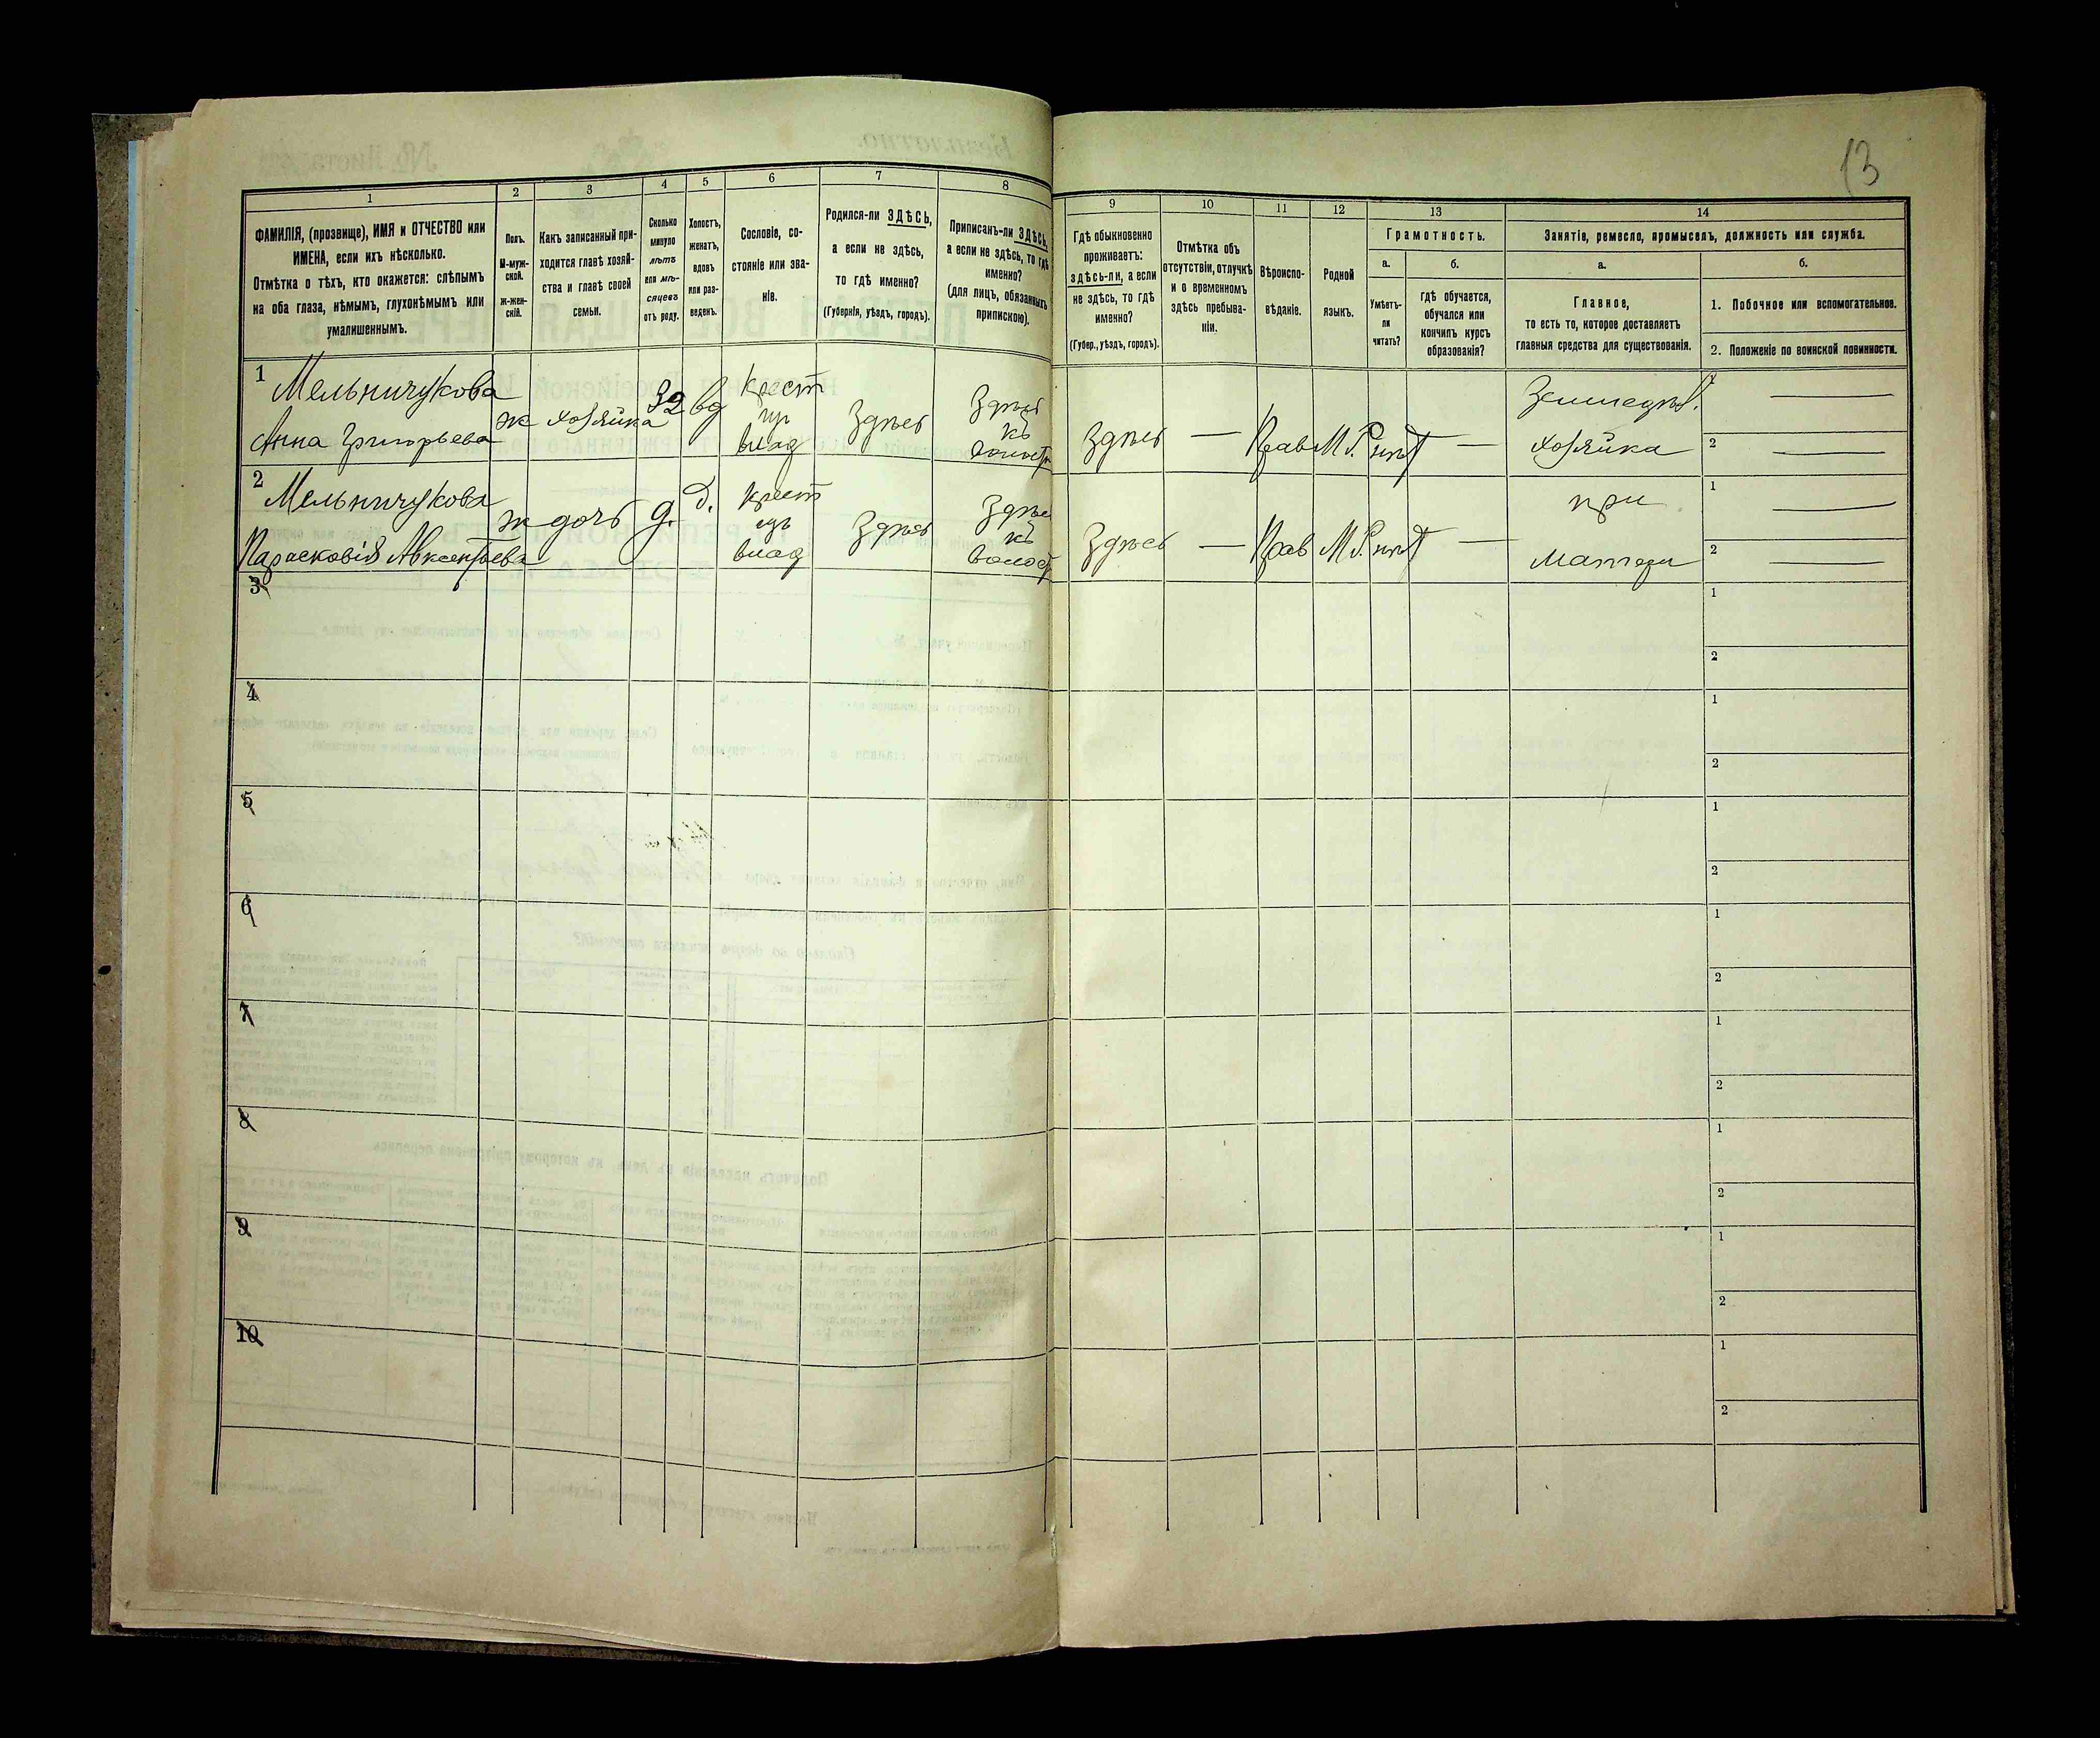 13
1
2
3
4
5
6
7
8
ФАМИЛІЯ, (прозвище), ИМЯ и ОТЧЕСТВО или
ИМЕНА, если ихъ нѣсколько.
Отмѣтка о тѣхъ, кто окажется: слѣпымъ
на оба глаза, нѣмымъ, глухонѣмымъ или
умалишеннымъ.
Полъ.
М-муж-
ской.
ж-жен-
скій.
Какъ записанный при-
ходится главѣ хозяй-
ства и главѣ своей
семьи.
Сколько
минуло
лѣтъ
или мѣ-
сяцевъ
отъ роду.
Холостъ,
женатъ,
вдовъ
или раз-
веденъ.
Сословіе, со-
стояніе или зва-
ніе.
Родился-ли ЗДѢСЬ,
а если не здѣсь,
то гдѣ именно?
(Губернія, уѣздъ, городъ).
Приписанъ-ли ЗДѢСЬ,
а если не здѣсь, то гдѣ
именно?
(для лицъ, обязанныхъ
припискою).
9
10
11
12
13
14
Гдѣ обыкновенно
проживаетъ:
здѣсь-ли, а если
не здѣсь, то гдѣ
именно?
(Губер., уѣздъ, городъ).
Отмѣтка объ
отсутствіи, отлучкѣ
и о временномъ
здѣсь пребыва-
ніи.
Вѣроиспо-
вѣданіе.
Родной
языкъ.
Грамотность.
а.
б.
Умѣетъ-
ли
читать?
Гдѣ обучается,
обучался или
кончилъ курсъ
образованія?
Занятіе, ремесло, промыселъ, должность или служба.
а.
б.
Главное,
то есть то, которое доставляетъ
главныя средства для существованія.
1. Побочное или вспомогательное.
2. Положеніе по воинской повинности.
1
Мельничукова
Анна Григорьева
ж
хозяйка
32
вд
Крест
влад
Здѣсь
Здѣсь
къ
волости
Здѣсь
—
Прав
М.Р.
нѣт
—
Земледѣл.
хозяйка
1
2
2
Мельничукова
Парасковія Авксентьева
ж
дочь
9.
д.
крест
влад
Здѣсь
Здѣсь
къ
волост
Здѣсь
—
Прав
М.Р.
нѣт
—
при
матери
1
2
3
1
2
4
1
2
5
1
2
6
1
2
7
1
2
8
1
2
9
1
2
10
1
2